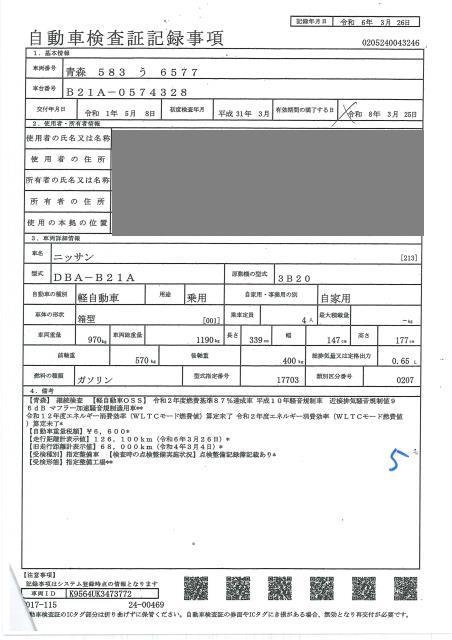 記録年月日 令和 6年 3月 26日
自動車検査証記録事項
0205240043246
1．基本情報
車両番号 青森 583 う 6577
車台番号 B21A-0574328
交付年月日 令和 1年 5月 8日 初度検査年月 平成 31年 3月 有効期間の満了する日 令和 8年 3月 25日
2．使用者・所有者情報
使用者の氏名又は名称
使用者の住所
所有者の氏名又は名称
所有者の住所
使用の本拠の位置
3．車両詳細情報
車名 ニッサン [213]
型式 DBA-B21A 原動機の型式 3B20
自動車の種別 軽自動車 用途 乗用 自家用・事業用の別 自家用
車体の形状 箱型 [001] 乗車定員 4人 最大積載量 -kg
車両重量 970kg 車両総重量 1190kg 長さ 339cm 幅 147cm 高さ 177cm
前軸重 570kg 後軸重 400kg 総排気量又は定格出力 0.65 L
燃料の種類 ガソリン 型式指定番号 17703 類別区分番号 0207
4．備考
【青森】 継続検査 【軽自動車OSS】 令和2年度燃費基準87%達成車 平成10年騒音規制車 近接排気騒音規制値9
6dB マフラー加速騒音規制適用車**
令和12年度エネルギー消費効率（WLTCモード燃費値）算定未了 令和2年度エネルギー消費効率（WLTCモード燃費値
）算定未了*
【自動車重量税額】¥6,600*
【走行距離計表示値】126,100km（令和6年3月26日）*
【旧走行距離計表示値】68,000km（令和4年3月4日）*
【受検種別】指定整備車 【検査時の点検整備実施状況】点検整備記録簿記載あり*
【受検形態】指定整備工場**
5
【注意事項】
記録事項はシステム登録時点の情報となります
車両ID K9564UK3473772
017-115 24-00469
自動車検査証のICタグ部分は折り曲げずに保管ください。自動車検査証の券面やICタグにき損がある場合、無効となり再交付が必要です。